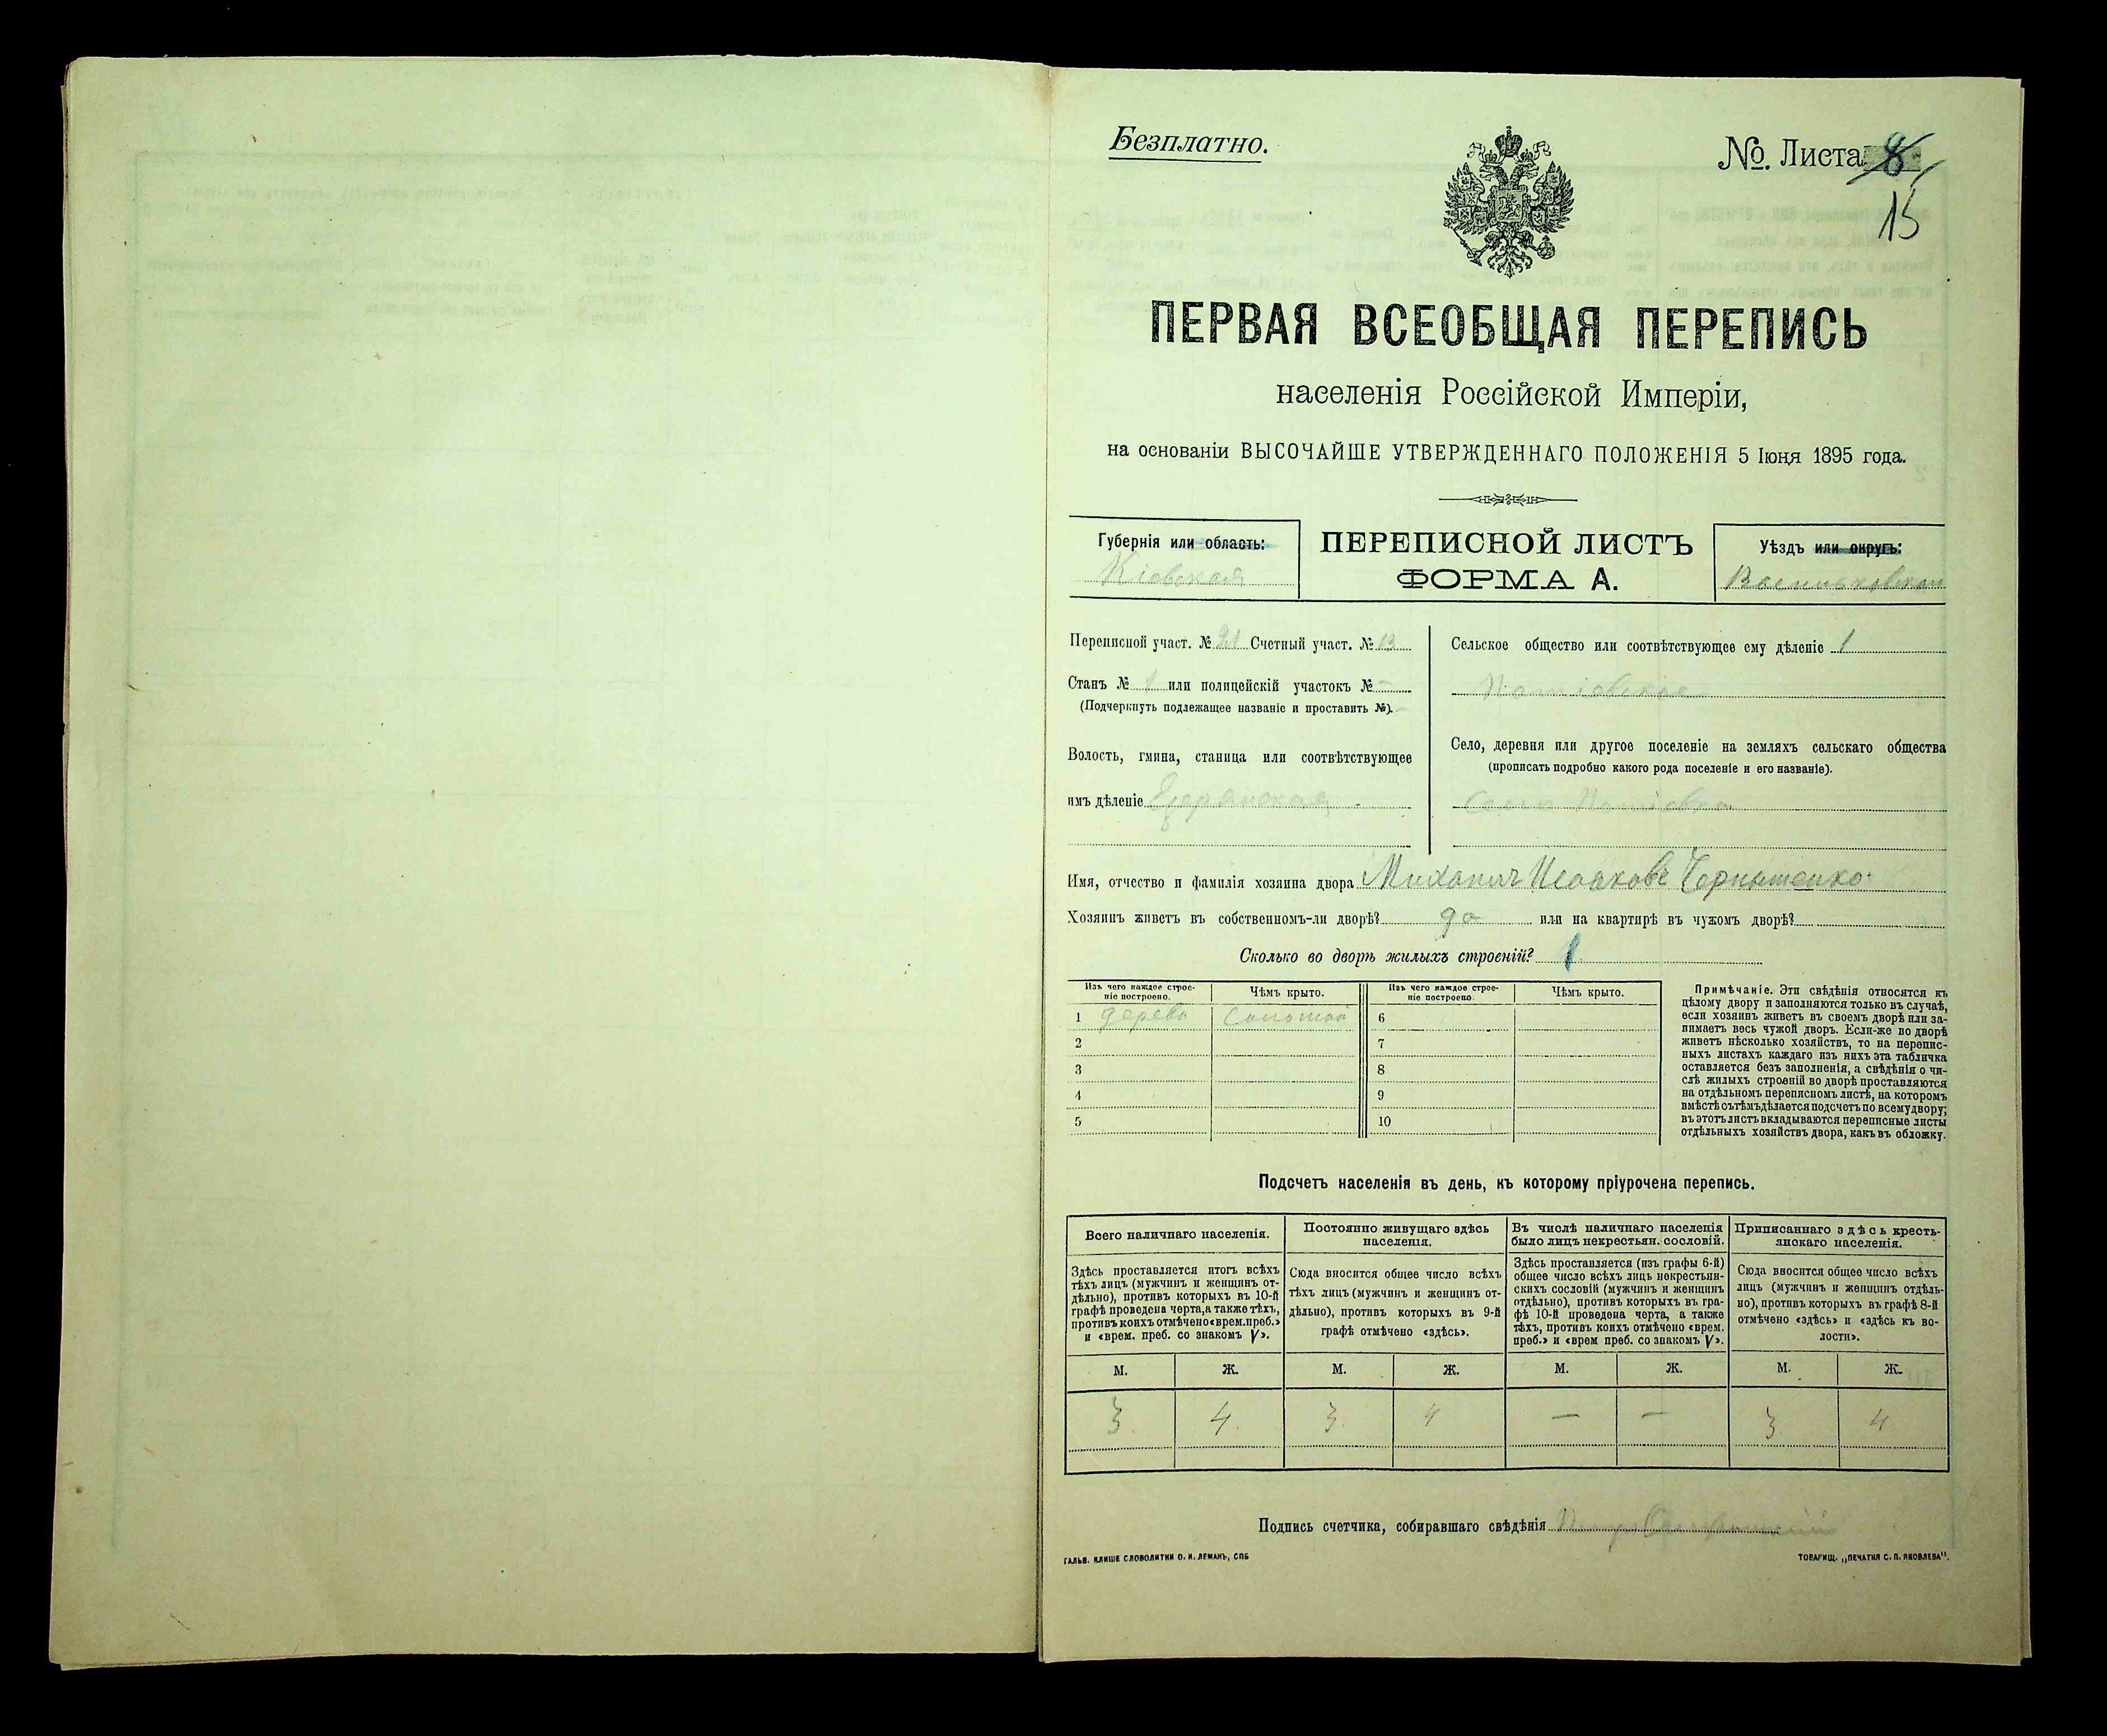 Безплатно.
№. Листа 8
15
ПЕРВАЯ ВСЕОБЩАЯ ПЕРЕПИСЬ
населенія Россійской Имперіи,
на основаніи ВЫСОЧАЙШЕ УТВЕРЖДЕННАГО ПОЛОЖЕНІЯ 5 Іюня 1895 года.
Губернія или область:
Кіевская
ПЕРЕПИСНОЙ ЛИСТЪ
ФОРМА А.
Уѣздъ или округъ:
Васильковскій
Переписной участ. № 21 Счетный участ. № 13
Станъ № 1 или полицейскій участокъ № –
(Подчеркнуть подлежащее названіе и проставить №).
Волость, гмина, станица или соотвѣтствующее
имъ дѣленіе
Сельское общество или соотвѣтствующее ему дѣленіе 1
Село, деревня или другое поселеніе на земляхъ сельскаго общества
(прописать подробно какого рода поселеніе и его названіе).
Село
Имя, отчество и фамилія хозяина двора Михаилъ Исаковъ
Хозяинъ живетъ въ собственномъ-ли дворѣ? да или на квартирѣ въ чужомъ дворѣ?
Сколько во дворѣ жилыхъ строеній? 1
Изъ чего каждое строе-
ніе построено.
Чѣмъ крыто.
Изъ чего каждое строе-
ніе построено.
Чѣмъ крыто.
1 дерева Соломой 6
2 7
3 8
4 9
5 10
Примѣчаніе. Эти свѣдѣнія относятся къ
цѣлому двору и заполняются только въ случаѣ,
если хозяинъ живетъ въ своемъ дворѣ или за-
нимаетъ весь чужой дворъ. Если-же во дворѣ
живетъ нѣсколько хозяйствъ, то на перепис-
ныхъ листахъ каждаго изъ нихъ эта табличка
оставляется безъ заполненія, а свѣдѣнія о чи-
слѣ жилыхъ строеній во дворѣ проставляются
на отдѣльномъ переписномъ листѣ, на которомъ
вмѣстѣ сътѣмъ дѣлается подсчетъ по всему двору;
въ этотъ листъ вкладываются переписные листы
отдѣльныхъ хозяйствъ двора, какъ въ обложку.
Подсчетъ населенія въ день, къ которому пріурочена перепись.
Всего наличнаго населенія.
Здѣсь проставляется итогъ всѣхъ
тѣхъ лицъ (мужчинъ и женщинъ от-
дѣльно), противъ которыхъ въ 10-й
графѣ проведена черта, а также тѣхъ,
противъ коихъ отмѣчено «врем. преб.»
и «врем. преб. со знакомъ V».
Постоянно живущаго здѣсь
населенія.
Сюда вносится общее число всѣхъ
тѣхъ лицъ (мужчинъ и женщинъ от-
дѣльно), противъ которыхъ въ 9-й
графѣ отмѣчено «здѣсь».
Въ числѣ наличнаго населенія
было лицъ некрестьян. сословій.
Здѣсь проставляется (изъ графы 6-й)
общее число всѣхъ лицъ некрестьян-
скихъ сословій (мужчинъ и женщинъ
отдѣльно), противъ которыхъ въ гра-
фѣ 10-й проведена черта, а также
тѣхъ, противъ коихъ отмѣчено «врем.
преб.» и «врем преб. со знакомъ V».
Приписаннаго здѣсь кресть-
янскаго населенія.
Сюда вносится общее число всѣхъ
лицъ (мужчинъ и женщинъ отдѣль-
но), противъ которыхъ въ графѣ 8-й
отмѣчено «здѣсь» и «здѣсь къ во-
лости».
М. Ж. М. Ж. М. Ж. М. Ж.
3 4 3 4 — — 3 4
Подпись счетчика, собиравшаго свѣдѣнія
ГАЛЬВ. КЛИШЕ СЛОВОЛИТНИ О. И. ЛЕМАНЪ, СПБ
ТОВАРИЩ. „ПЕЧАТНЯ С. П. ЯКОВЛЕВА".